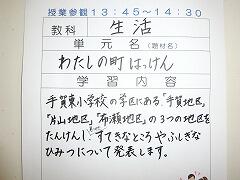 授業参観:13:45〜14:30
教科 生活
単元名(題材名)
わたしの町はっけん
学習内容
手賀東小学校の学区にある「手賀地区」
「片山地区」「布瀬地区」の3つの地区を
たんけんし、すてきなところやふしぎな
ひみつについて発表します。